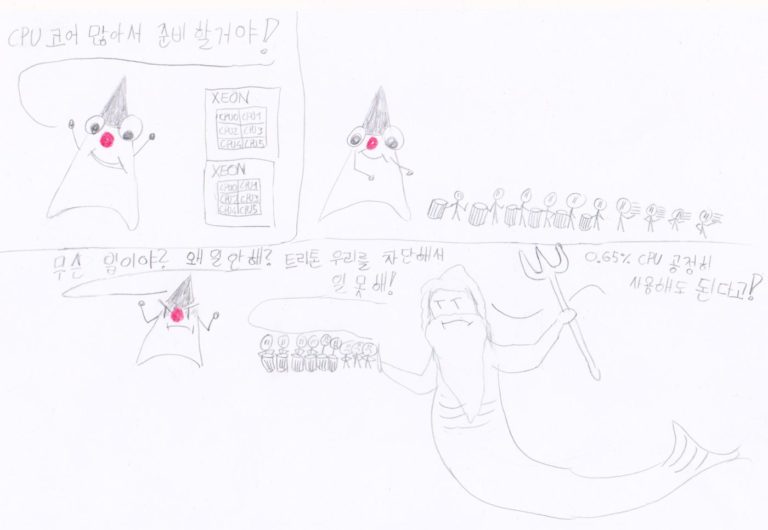 CPU 코어 많아서 준비 할거야!
XEON
CPU0 CPU1
CPU2 CPU3
CPU4 CPU5
XEON
CPU0 CPU1
CPU2 CPU3
CPU4 CPU5
무슨 일이야? 왜 일 안 해?
트리톤 우리를 차단해서
일 못 해!
0.65% CPU 공정히
사용해도 된다고!